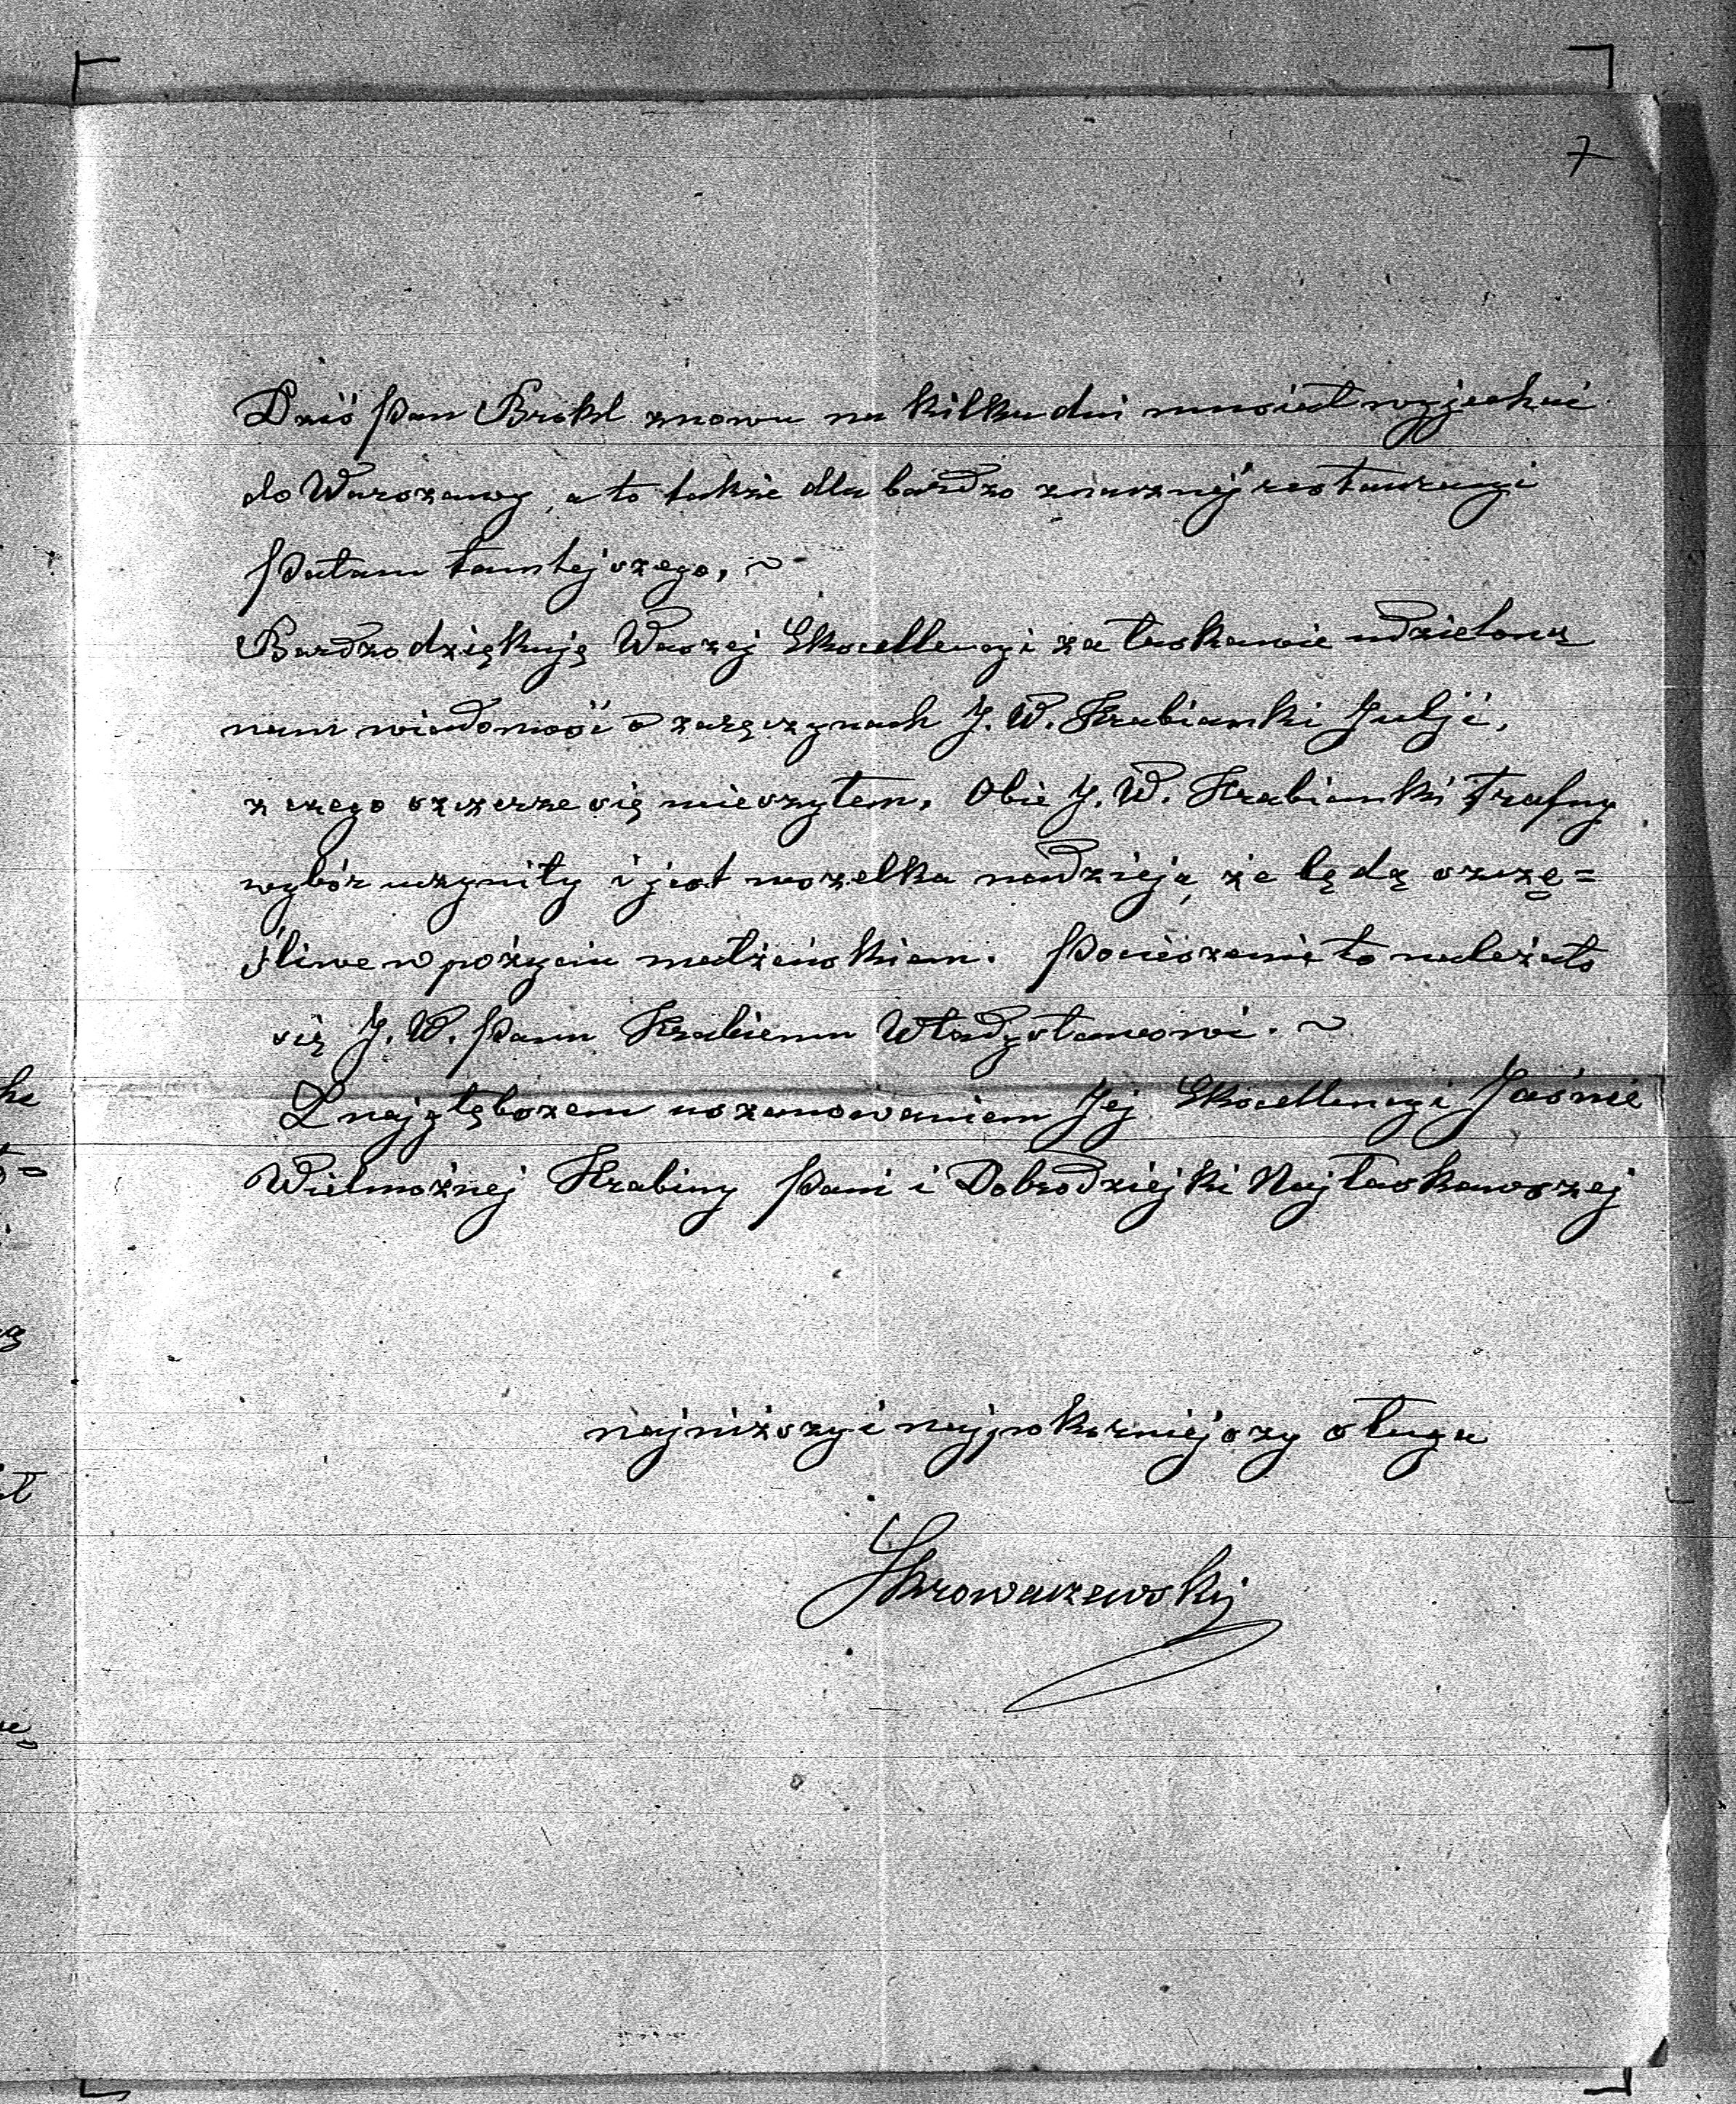 7
Dziś Pan Brokl znowu na kilku dni musiał wyjechać
do Warszawy, a to także dla bardzo znacznej restauracyi
Pałacu tamtejszego. ~
Bardzo dziękuję Waszej Ekscellencyi za łaskawie udzieloną
nam wiadomość o zaręczynach J. W. Hrabianki Julji,
z czego szczerze się ucieszyłem. Obie J. W. Hrabianki trafny
wybór uczyniły i jest wszelka nadzieja, że będą szczę=
śliwe w pożyciu małżeńskiem. Pocieszenie to należało
się J. W. Panu Hrabiemu Władysławowi. ~
Z najgłębszem uszanowaniem Jej Ekscellencyi Jaśnie
Wielmożnej Hrabiny Pani i Dobrodziejki Najłaskawszej
najniższy i najpokorniejszy sługa